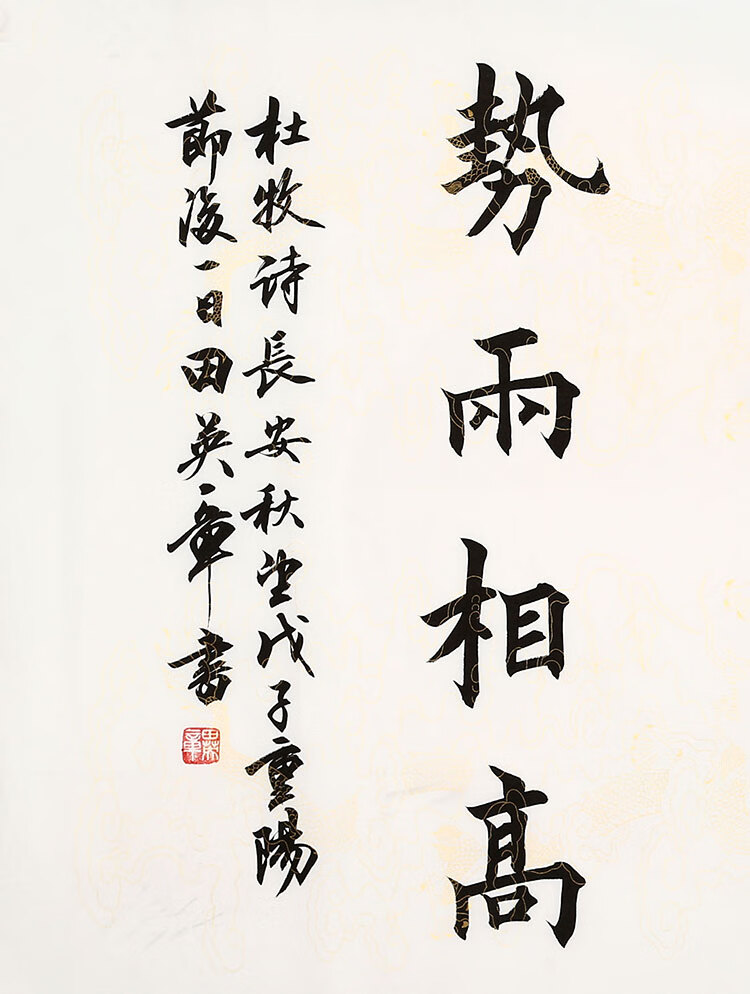 勢兩相高
杜牧诗長安秋望戊子重陽
節後一日田英章書
田英章